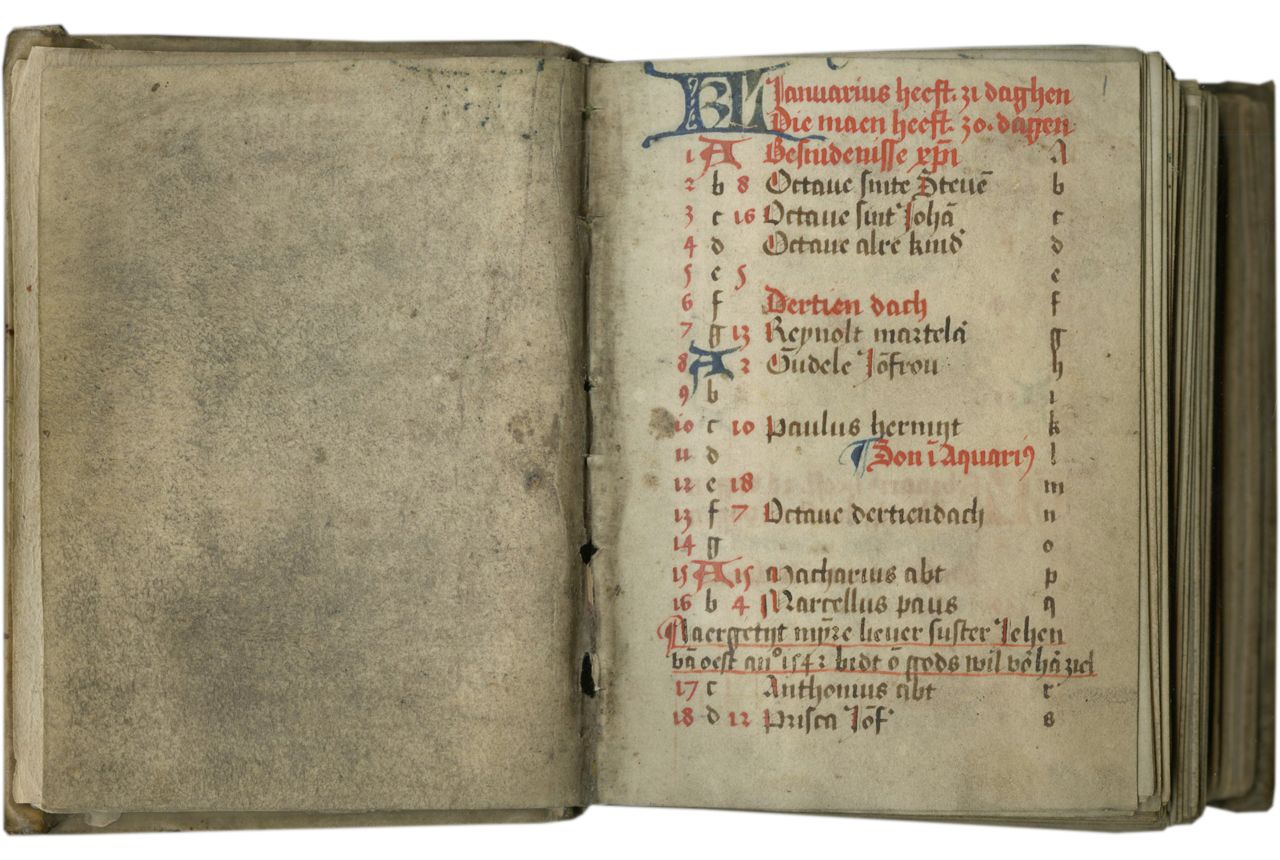 KL Januarius heeft. 31 daghen
Die maen heeft. 30. dagen
1 A Besnidenisse xp̄i A
2 b 8 Octaue sinte Steuē b
3 c 16 Octaue sint Johā c
4 d Octaue alre kind' d
5 e 5 e
6 f Dertien dach f
7 g 13 Reynolt martelā g
8 A 2 Gudele Jōfrou h
9 b i
10 c 10 Paulus hermijt k
11 d Son ī Aquari9 l
12 e 18 m
13 f 7 Octaue dertiendach n
14 g o
15 A 15 Macharius abt p
16 b 4 Marcellus paus q
lieuer suster Jehen
vā oest anº 1542 bidt ō gods wil vō hā ziel
17 c Anthonius abt r
18 d 12 Prisca Jōf' s
1